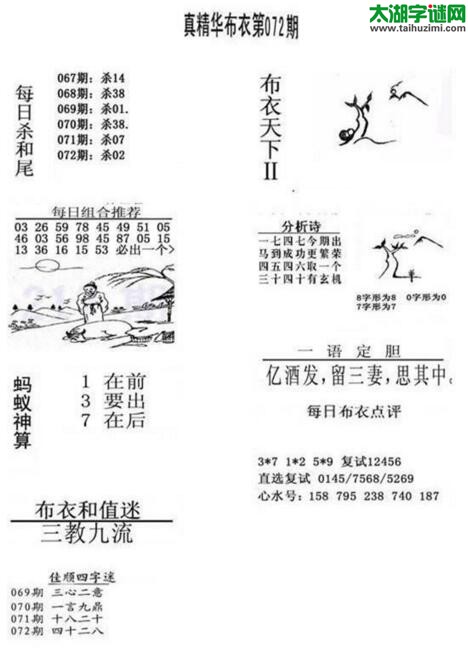 太湖字谜网
www.taihuzimi.com
真精华布衣第072期
每日杀和尾
067期：杀14
068期：杀38
069期：杀01.
070期：杀38.
071期：杀07
072期：杀02
布衣天下II
每日组合推荐
03 26 59 78 45 49 51 05
46 03 56 98 45 87 05 15
13 36 16 15 53 必出一个>
分析诗
一七四七今期出
马到成功更繁荣
四五四六取一个
三十四十有玄机
8字形为8 0字形为0
7字形为7
蚂蚁神算
1 在前
3 要出
7 在后
一语定胆
亿酒发，留三妻，思其中。
每日布衣点评
3*7 1*2 5*9 复试12456
直选复试 0145/7568/5269
心水号：158 795 238 740 187
布衣和值迷
三教九流
佳顺四字迷
069期 三心二意
070期 一言九鼎
071期 十八二十
072期 四十二八